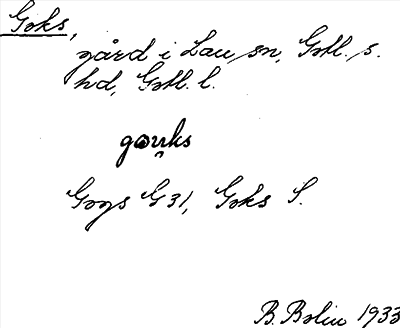 Goks,
gård i Lau sn, Gotl. s.
hd, Gotl. l.
gou̯ks
Gogs G 31, Goks S.
B. Bolin 1933